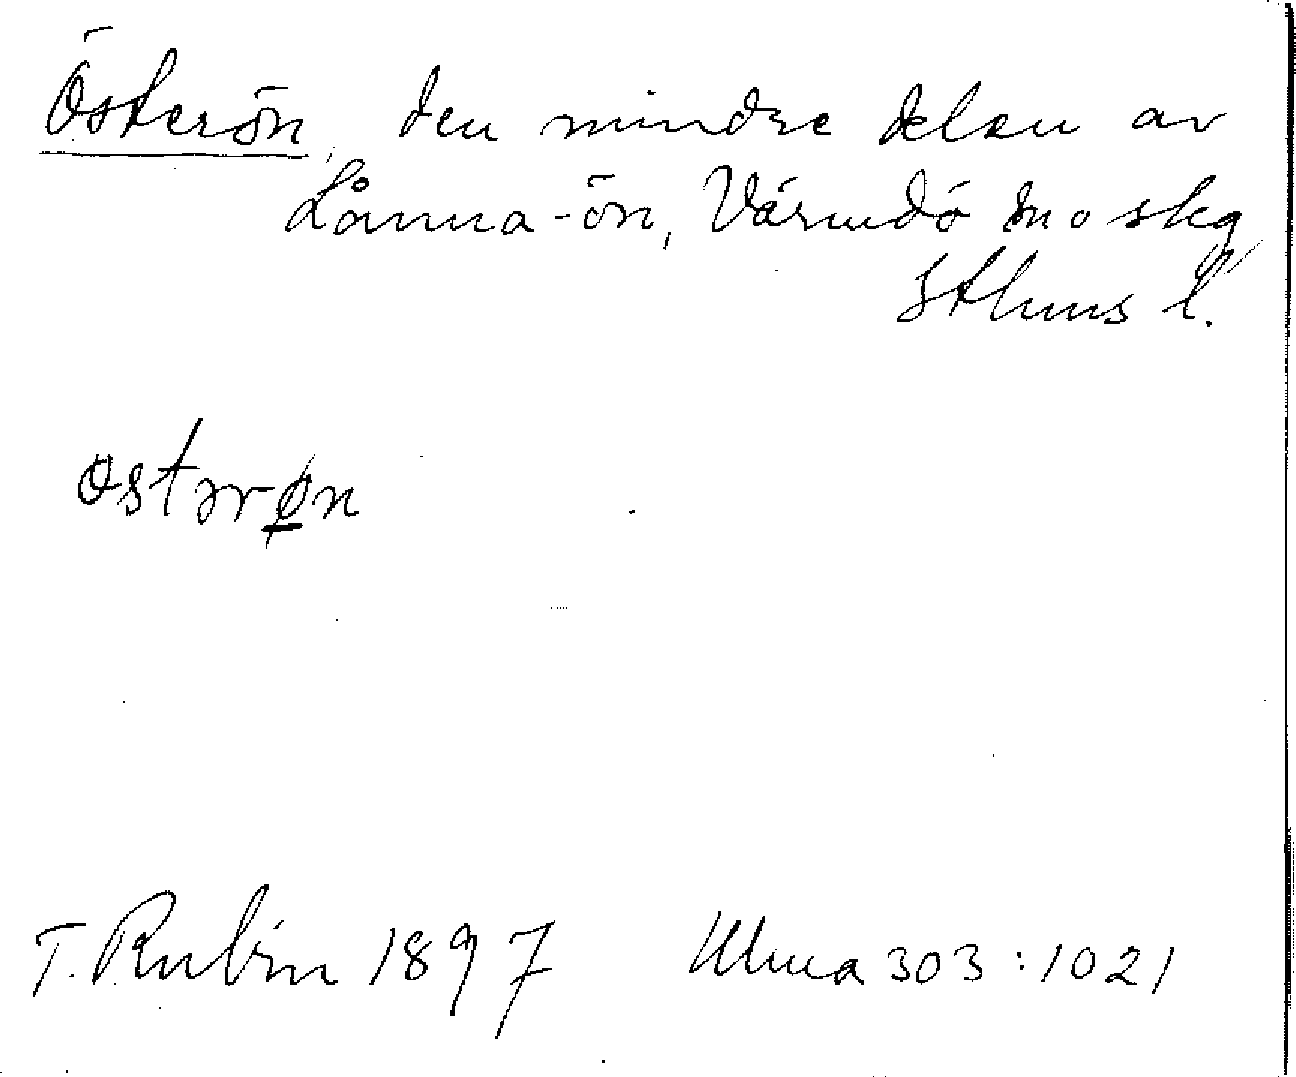 Österön, den mindre delen av
Lånna-ön, Värmdö sn o skg,
Sthms l.
østərø̱n
T. Rubin 1897 Ulma 303:1021